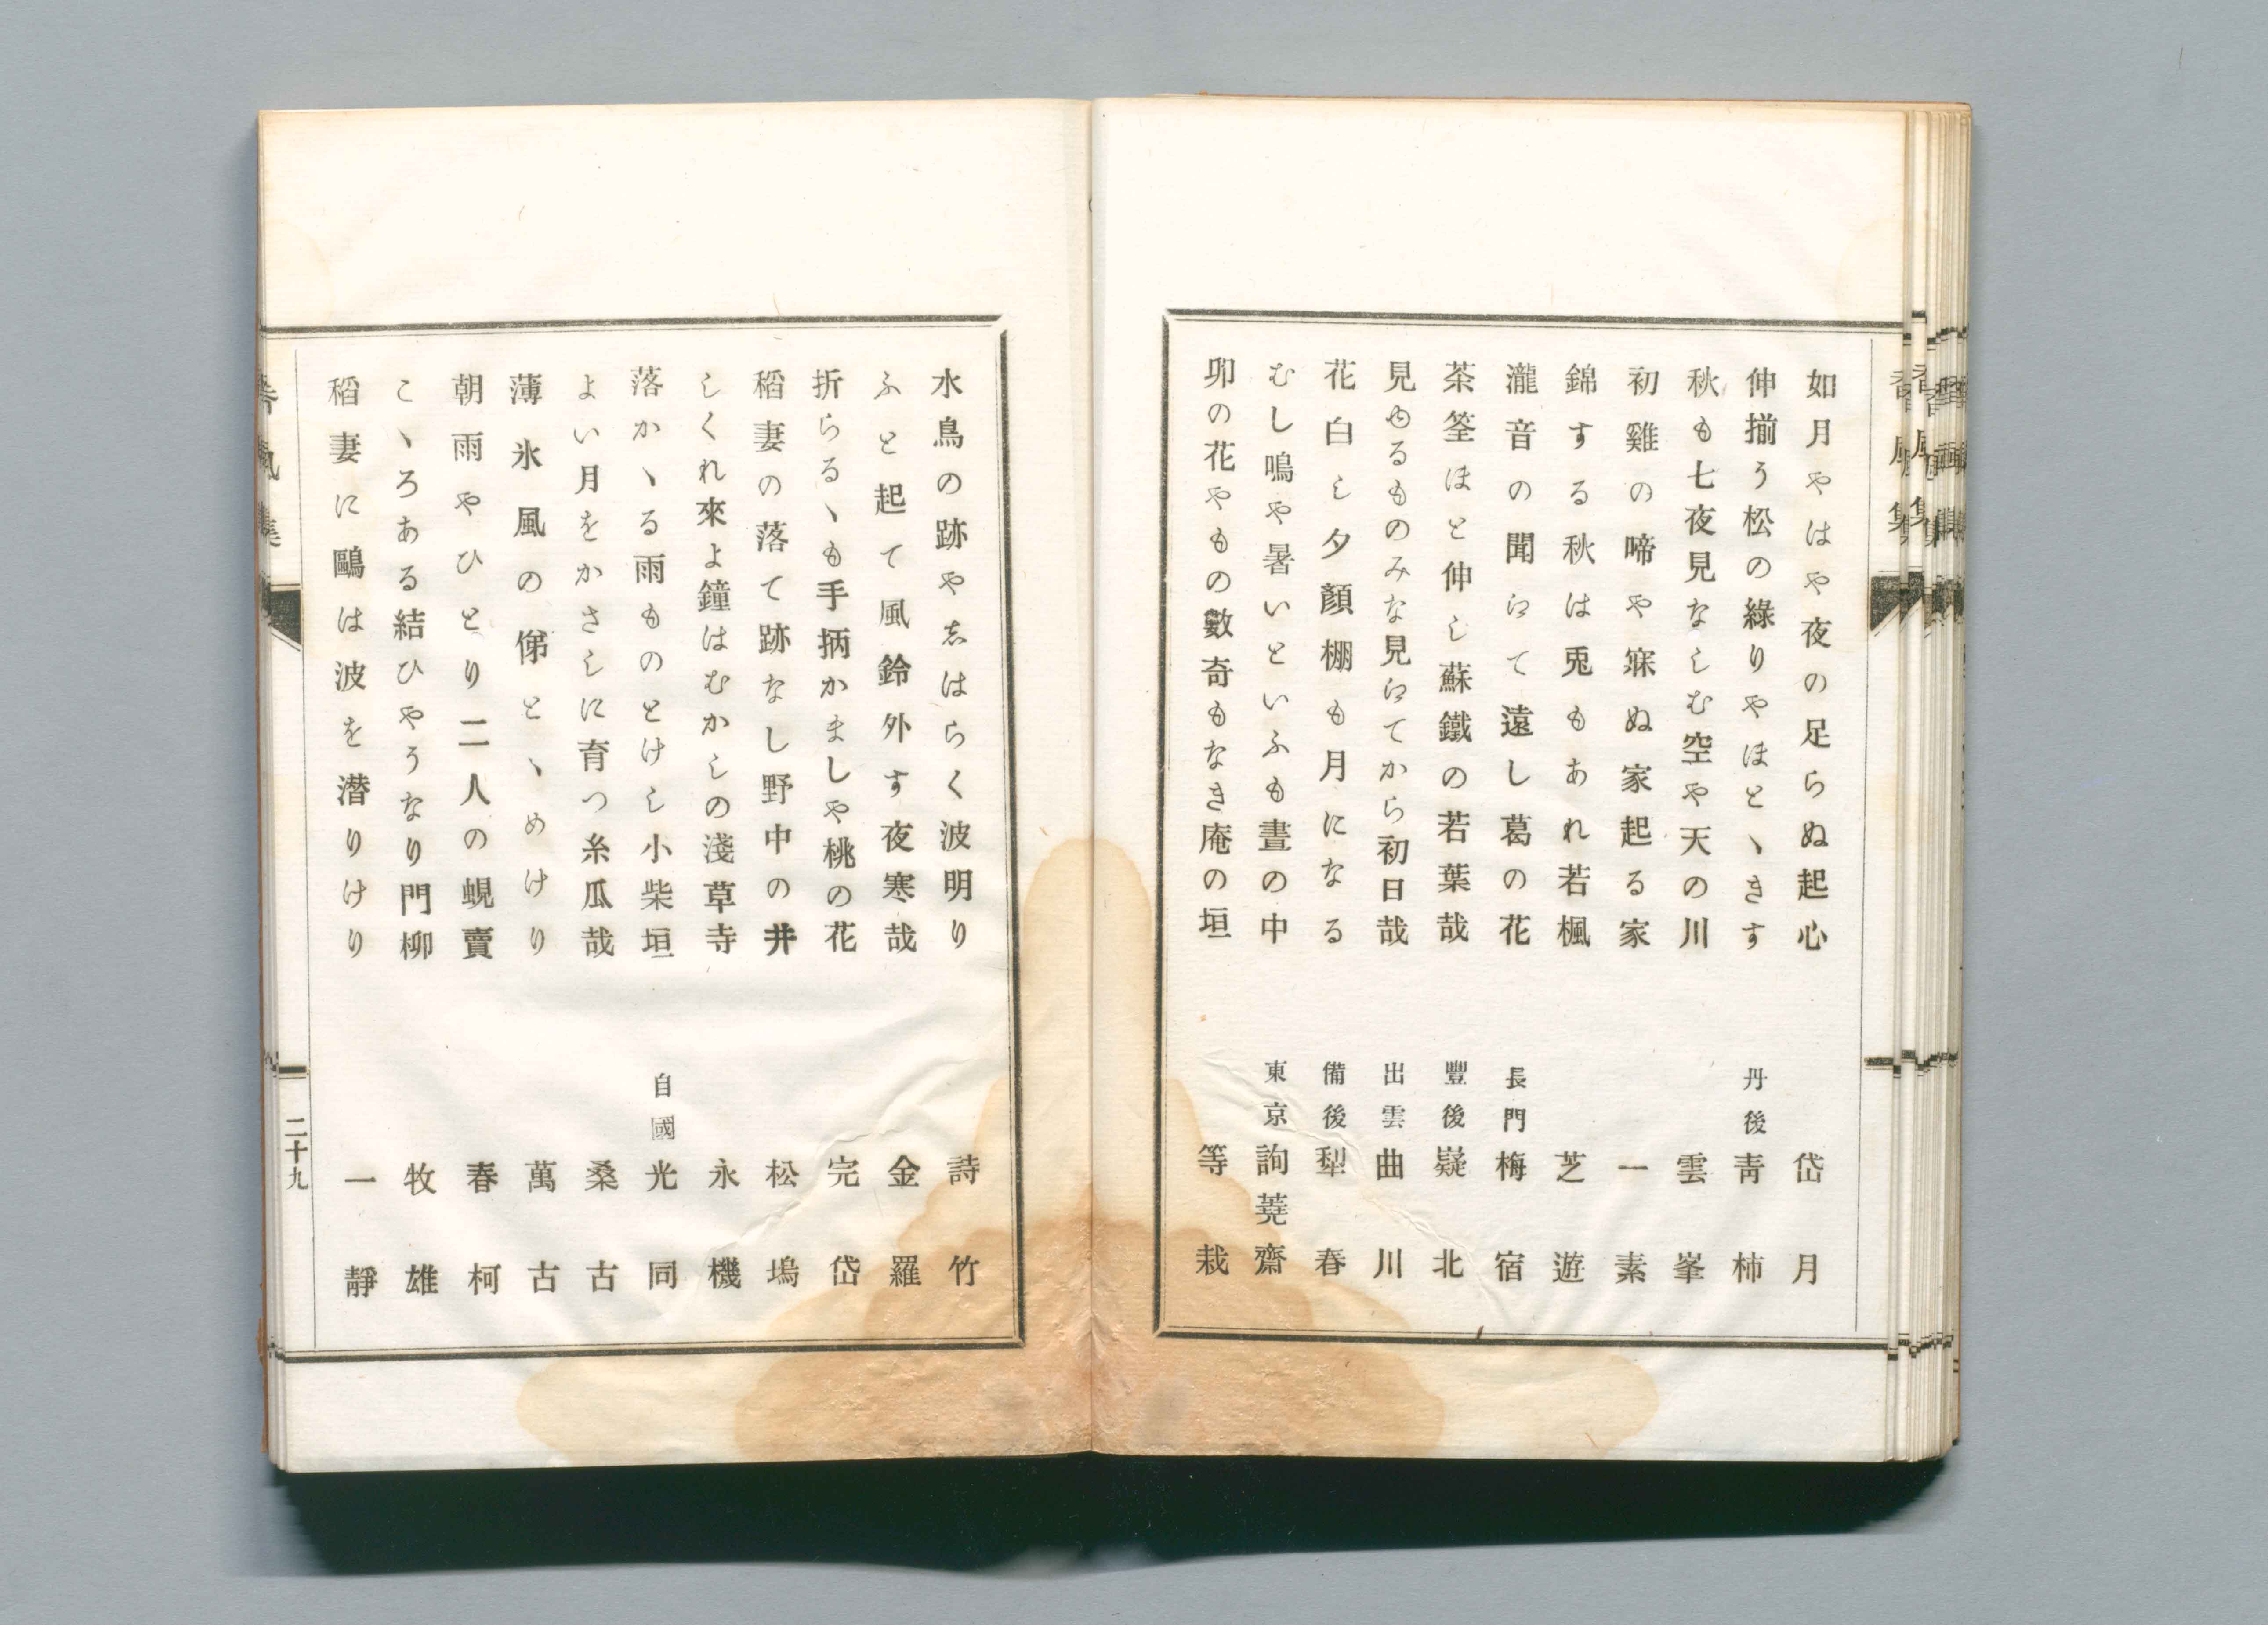 如月やはや夜の足らぬ起心 岱月
伸揃う松の綠りやほとゝきす 丹後 靑柿
秋も七夜見なしむ空や天の川 雲峯
初雞の啼や寐ぬ家起る家 一素
錦する秋は兎もあれ若楓 芝遊
瀧音の聞にて遠し葛の花 長門 梅宿
茶筌ほと伸し蘇鐵の若葉哉 豐後 嶷北
見ゆるものみな見にてから初日哉 出雲 曲川
花白し夕顏棚も月になる 備後 犁春
むし鳴や暑いといふも晝の中 東京 詢蕘齋
卯の花やもの數奇もなき庵の垣 等栽
水鳥の跡や志はらく波明り 詩竹
ふと起て風鈴外す夜寒哉 金羅
折らるゝも手柄かましや桃の花 完岱
稻妻の落て跡なし野中の井 松塢
しくれ來よ鐘はむかしの淺草寺 永機
落かゝる雨ものとけし小柴垣 自國 光同
よい月をかさしに育つ糸瓜哉 桑古
薄氷風の俤とゝめけり 萬古
朝雨やひとり二人の蜆賣 春柯
こゝろある結ひやうなり門柳 牧雄
稻妻に鷗は波を潜りけり 一靜
二十九